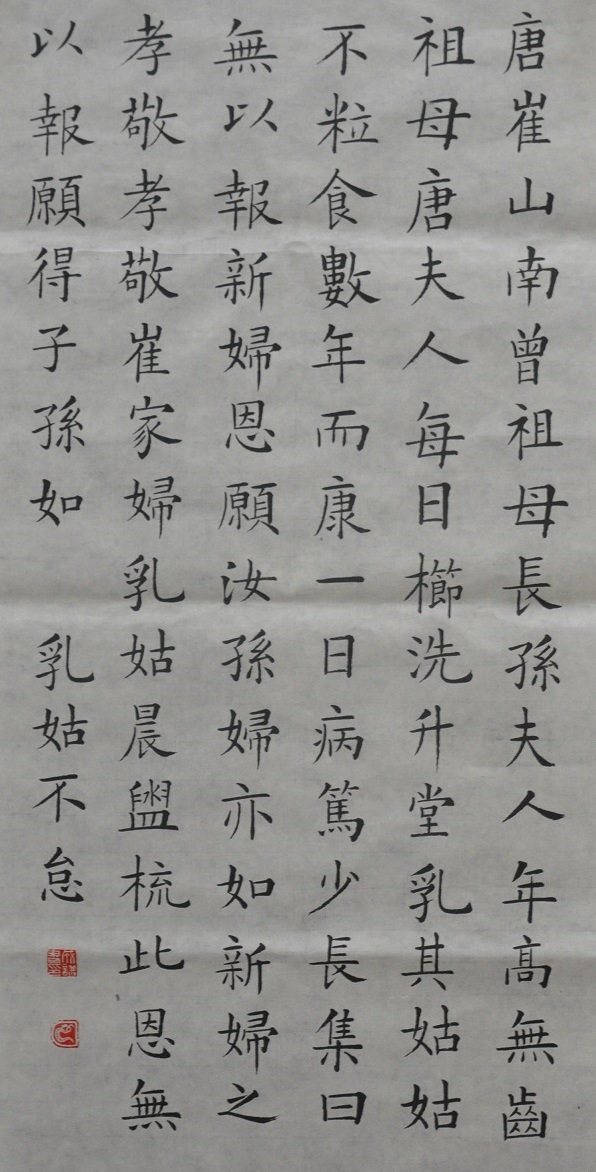 唐崔山南曾祖母長孫夫人年高無齒
祖母唐夫人每日櫛洗升堂乳其姑姑
不粒食數年而康一日病篤少長集曰
無以報新婦恩願汝孫婦亦如新婦之
孝敬孝敬崔家婦乳姑晨盥梳此恩無
以報願得子孫如 乳姑不怠